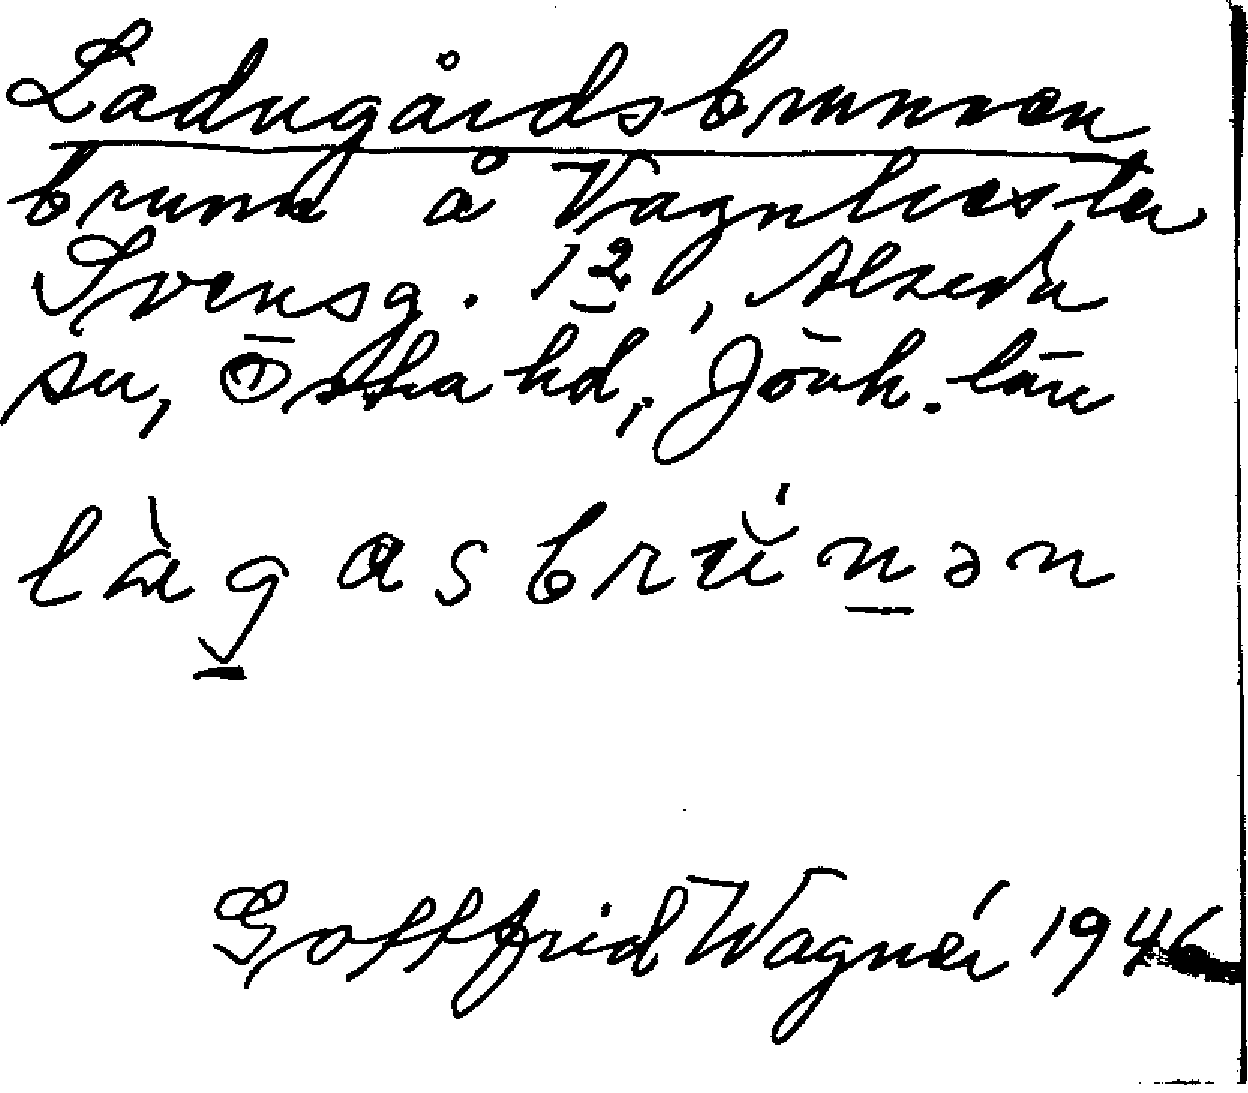 Ladugårdsbrunnen
brunn å Vagnhester
Svensg. 12, Alseda
sn, Östra hd, Jönk. län
làgasbrŭ́nən
Gottfrid Wagnér 1946